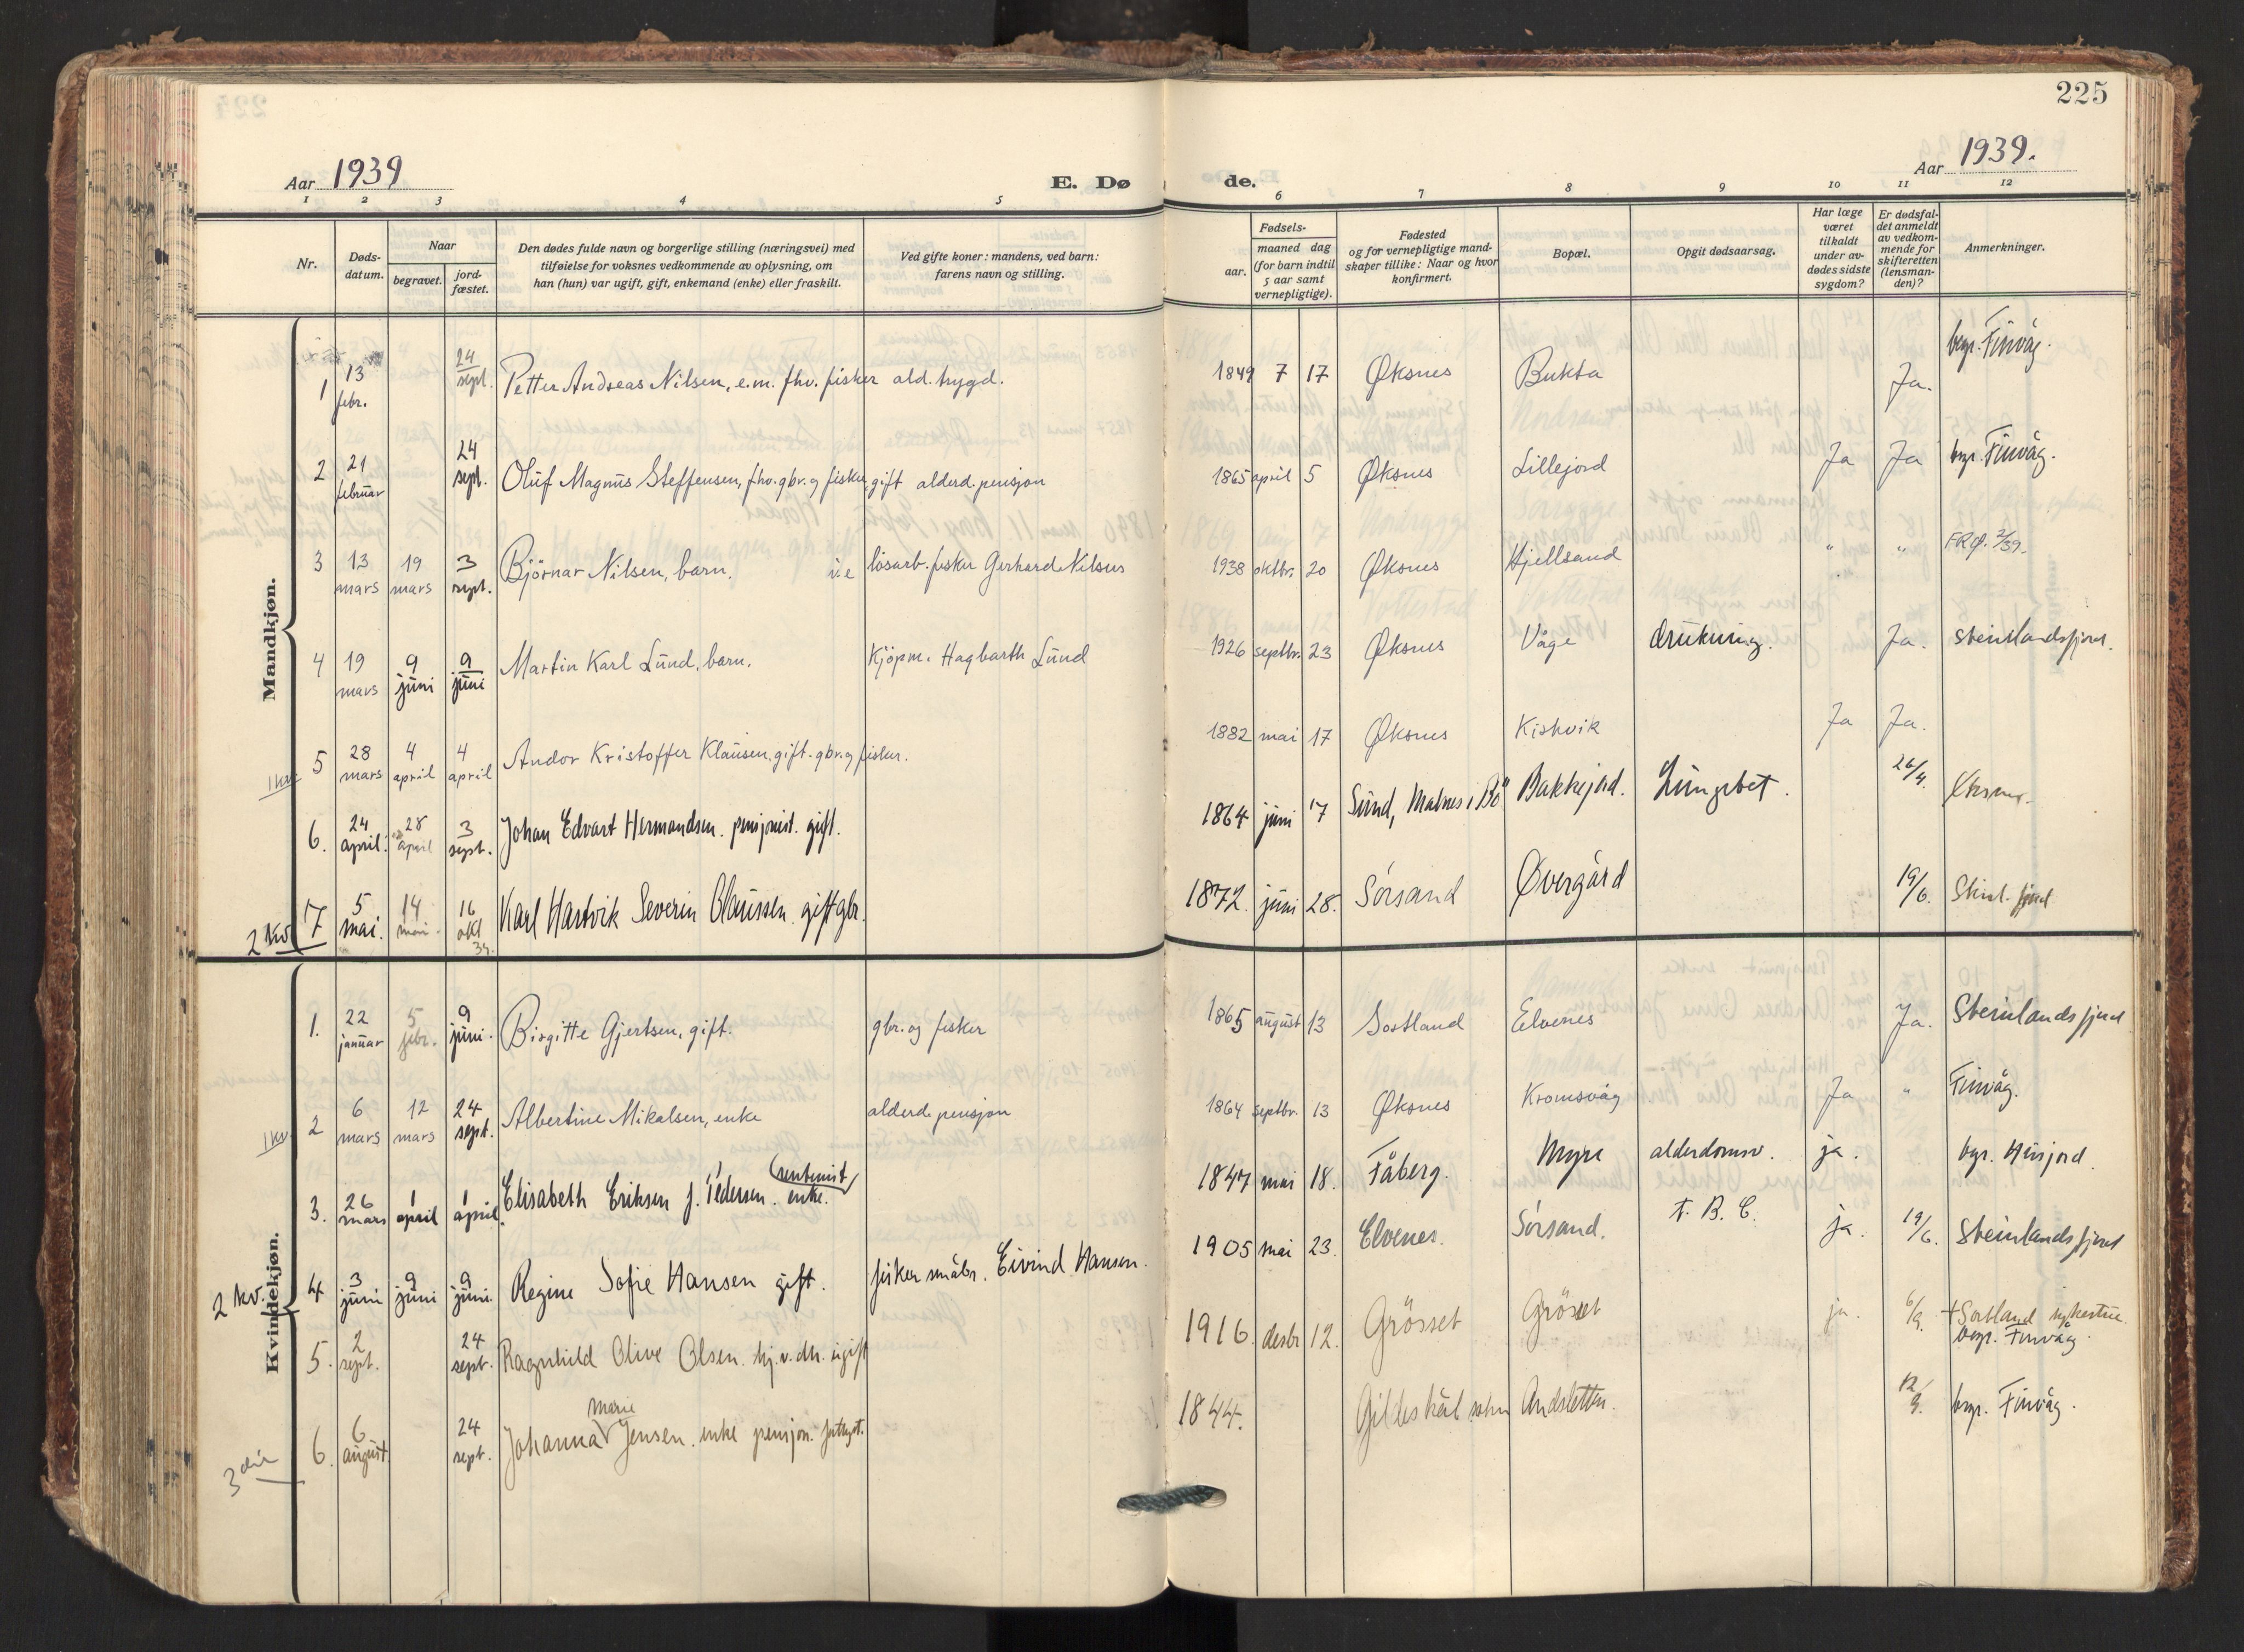 225
Aar 1939
E. Dø
de.
Aar 1939.
1 2 3 4 5 6 7 8 9 10 11 12
Nr.
Døds-
datum.
Naar
begravet.
jord-
fæstet.
Den dødes fulde navn og borgerlige stilling (næringsvei) med
tilføielse for voksnes vedkommende av oplysning, om
han (hun) var ugift, gift, enkemand (enke) eller fraskilt.
Ved gifte koner: mandens, ved barn:
farens navn og stilling.
Fødsels-
aar.
maaned dag
(for barn indtil
5 aar samt
vernepligtige).
Fødested
og for vernepligtige mand-
skaper tillike: Naar og hvor
konfirmert.
Bopæl.
Opgit dødsaarsag.
Har læge
været
tilkaldt
under av-
dødes sidste
sygdom?
Er dødsfal-
det anmeldt
av vedkom-
mende for
skifteretten
(lensman-
den)?
Anmerkninger.
Mandkjøn.
1 13 febr. 24 sept. Petter Andreas Nilsen, e.m. fhv. fisker ald. trygd. 1849 7 17 Øksnes Bukta Ja. begr. Finvåg.
2 21 februar 24 sept. Oluf Magnus Steffensen, fhv. gbr. og fisker, gift alderd. pensjon 1865 april 5 Øksnes Lillejord Ja Ja begr. Finvåg.
3 13 mars 19 mars 3 sept. Björnar Nilsen, barn. u.e lösarb. fisker Gerhard Nilsens 1938 oktbr. 20 Øksnes Hjellsand " "
4 19 mars 9 juni 9 juni Martin Karl Lund, barn. Kjöpm. Hagbarth Lund 1926 septbr. 23 Øksnes Våge drukning. Ja. Steinlandsfjord.
1 kv. 5 28 mars 4 april 4 april Andor Kristoffer Klausen, gift. gbr. og fisker. 1882 mai 17 Øksnes Kishvik Ja Ja.
6. 24 april. 28 april 3 sept. Johan Edvart Hermandsen. pensjonist. gift. 1864 juni 17 Sund, Malnes i Bö Bakkejord. Lungebet. 26/4. Øksnes.
2 kv. 7 5 mai. 14 mai. 16 okt 39. Karl Hartvik Severin Olaussen. gift gbr. 1872. juni 28. Sörsand Øvergård 19/6. Steinl. fjord
Kvindekjøn.
1. 22 januar 5 febr. 9 juni. Birgitte Gjertsen, gift. gbr. og fisker 1865 august 13 Sortland Elvenes Ja. Steinlandsfjord
1 kv. 2 6 mars 12 mars 24 sept. Albertine Mikalsen, enke alderd. pensjon 1864 septbr. 13 Øksnes Kromsvåg Ja " Finvåg.
3. 26 mars 1 april 1 april. Elisabeth Eriksen f. Pedersen. enke. (rentenist) 1847 mai 18. Fåberg. Myre alderdomsv. ja. begr. Husjord
2 kv. 4 3 juni 9 juni 9 juni. Regine Sofie Hansen gift. fisker småbr. Eivind Hansen. 1905 mai 23. Elvenes. Sörsand. t. B. C. ja. 19/6. Steinlandsfjord
5. 2 sept. 24 sept. Ragnhild Olive Olsen. hj.v. dtr. ugift 1916. desbr 12. Grösset Grösset ja. 6/9. + Sortland sykestue
begr. Finvåg.
marie
3 die 6. 6 august 24 sept. Johanna Jensen. enke pensjon. 1844. Gildeskål Andsletten. 12/9. begr. Finvåg.